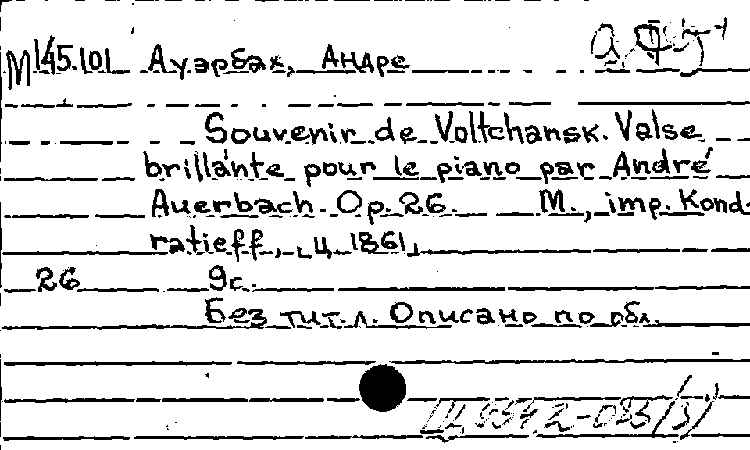 М 145.101 Ауэрбах, Андре
Souvenir de Voltchansk. Valse
brillante pour le piano par André
Auerbach. Op. 26. М., imp. Kond-
ratieff, ц. 1861.
26 9с.
Без тит. л. Описано по обл.